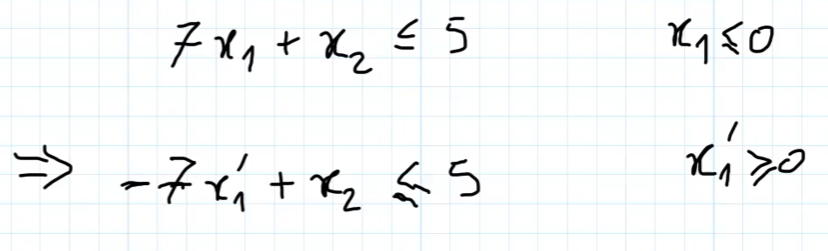 7x₁ + x₂ ≤ 5 x₁ ≤ 0
⇒ -7x₁′ + x₂ ≤ 5 x₁′ ≥ 0